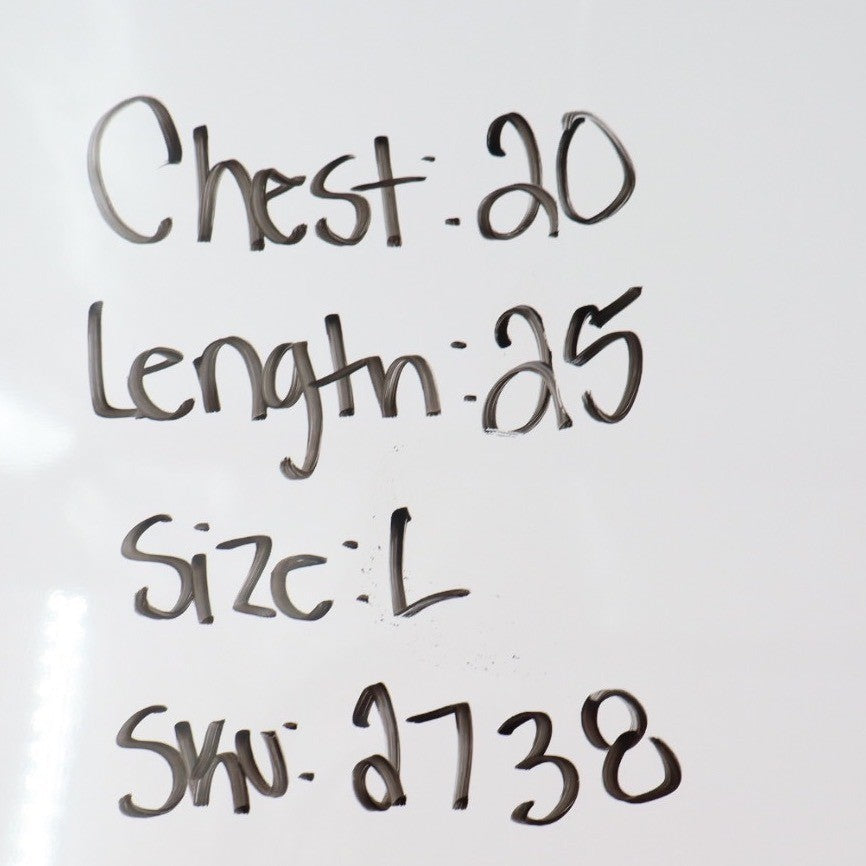 Chest: 20
Length: 25
Size: L
SKU: 2738